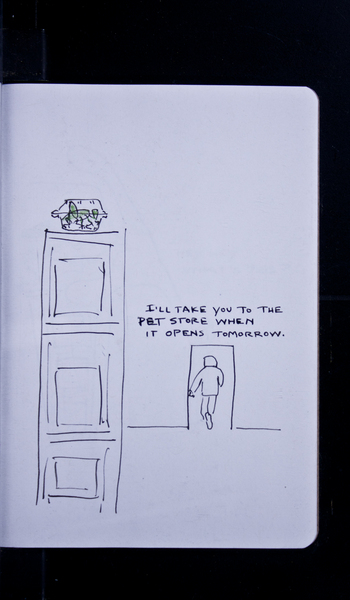 I'LL TAKE YOU TO THE
PET STORE WHEN
IT OPENS TOMORROW.